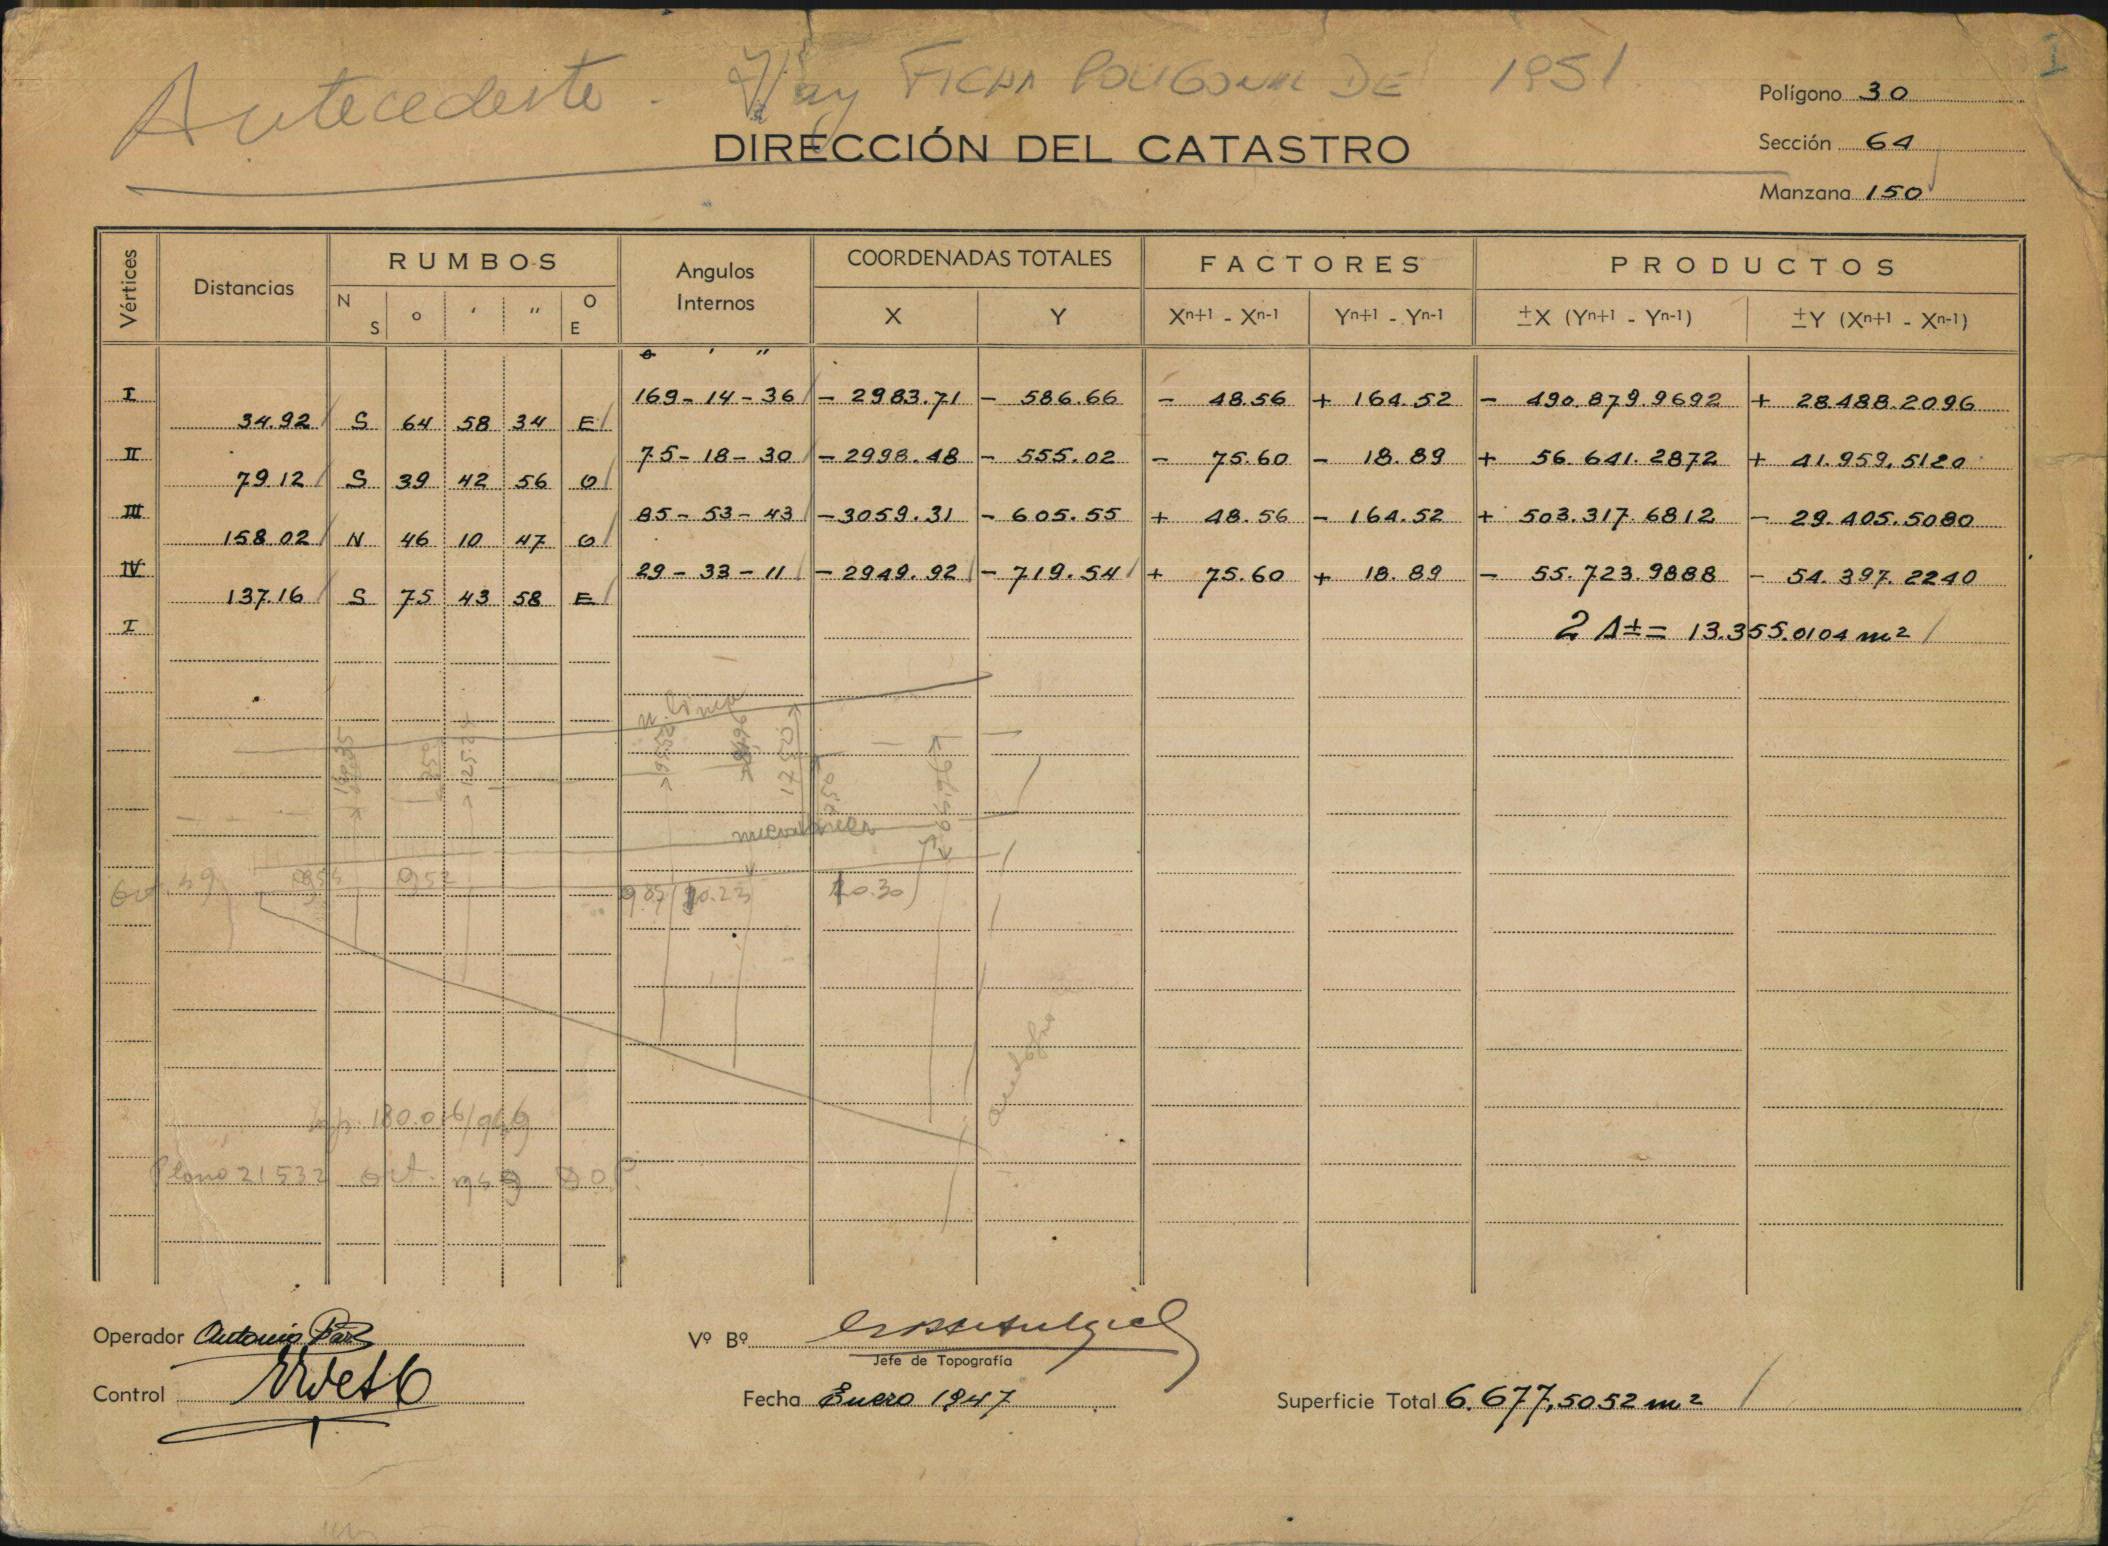 Antecedente. Hay FICHA POLIGONAL DE 1951
I
Polígono 30
DIRECCIÓN DEL CATASTRO
Sección 64
Manzana 150
Vértices Distancias RUMBOS Angulos Internos COORDENADAS TOTALES FACTORES PRODUCTOS
N S o ' " O E X Y Xn+1 - Xn-1 Yn+1 - Yn-1 ±X (Yn+1 - Yn-1) ±Y (Xn+1 - Xn-1)
o ' "
I 169-14-36 - 2983.71 - 586.66 - 48.56 + 164.52 - 490.879.9692 + 28.488.2096
34.92 S 64 58 34 E
II 75-18-30 - 2998.48 - 555.02 - 75.60 - 18.89 + 56.641.2872 + 41.959.5120
79.12 S 39 42 56 O
III 85-53-43 - 3059.31 - 605.55 + 48.56 - 164.52 + 503.317.6812 - 29.405.5080
158.02 N 46 10 47 O
IV 29-33-11 - 2949.92 - 719.54 + 75.60 + 18.89 - 55.723.9888 - 54.397.2240
137.16 S 75 43 58 E
I 2 A ± = 13.355.0104 m2
952
10.23 10.30
Plano 21532 oct.
Operador Antonio Paz
Vº Bº
Jefe de Topografía
Control
Fecha Enero 1947
Superficie Total 6.677,5052 m2